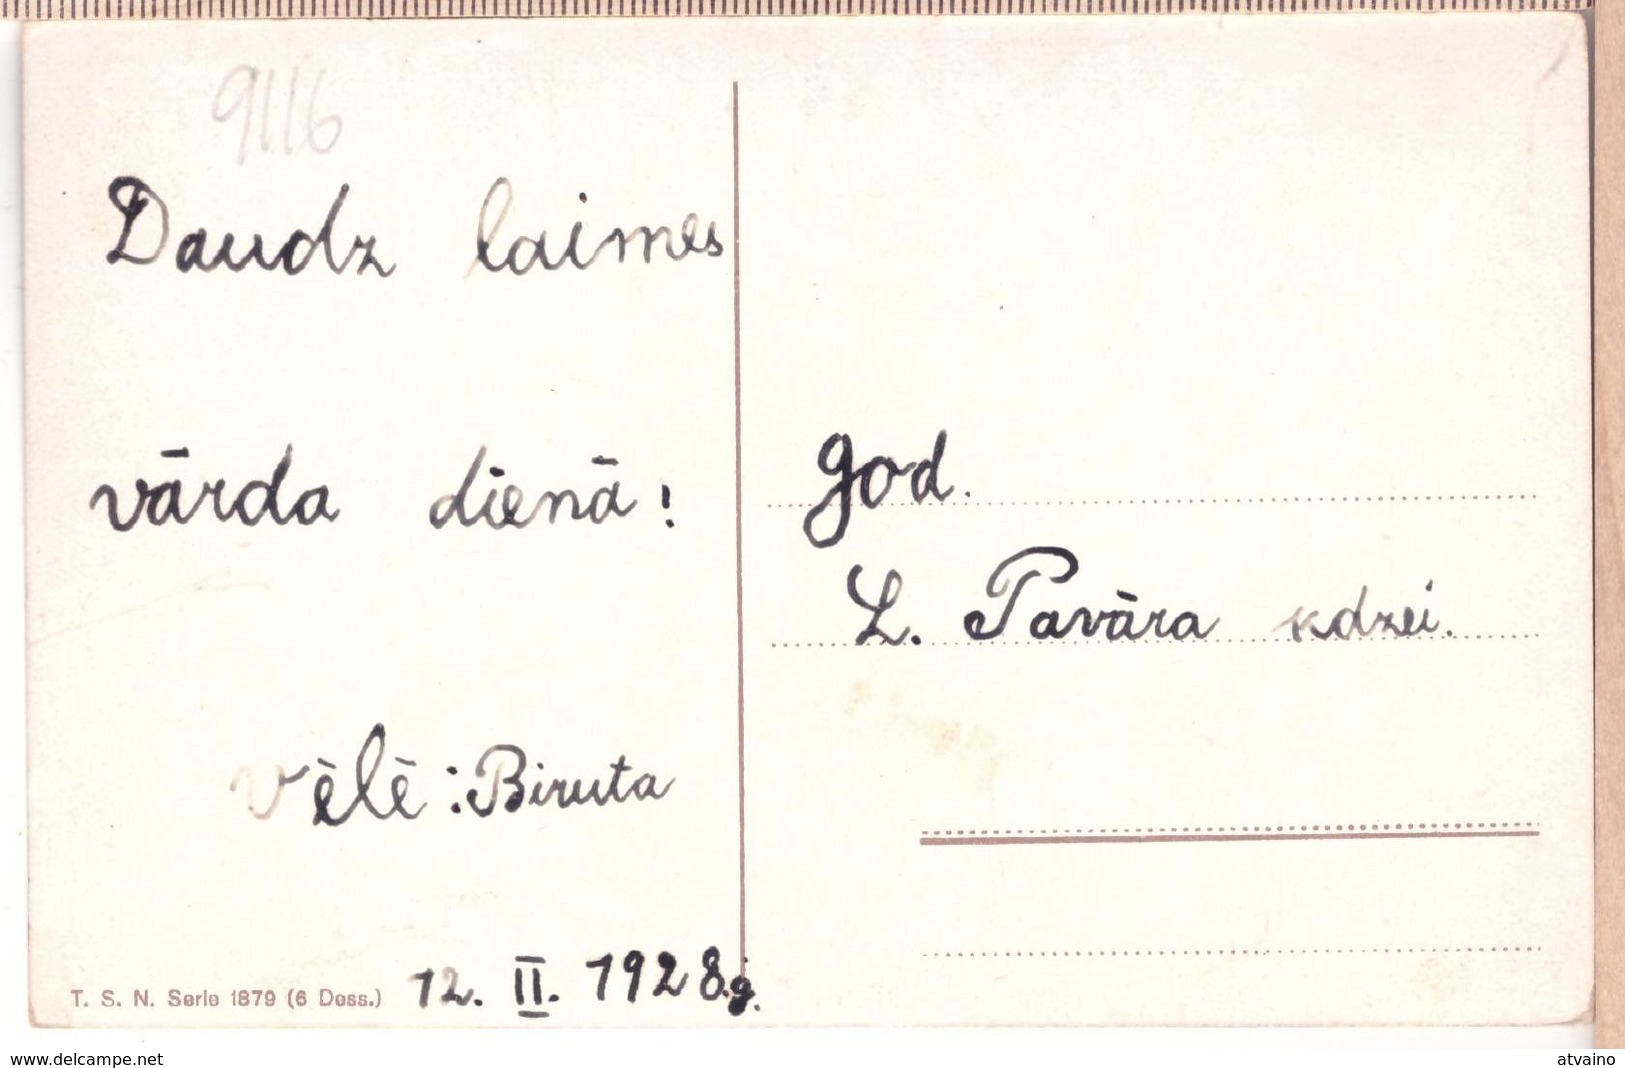 9116
Daudz laimes
vārda dienā!
vēlē: Biruta
12. II. 1928.g.
T. S. N. Serie 1879 (6 Dess.)
god.
L. Pavāra kdzei.
www.delcampe.net
atvaino